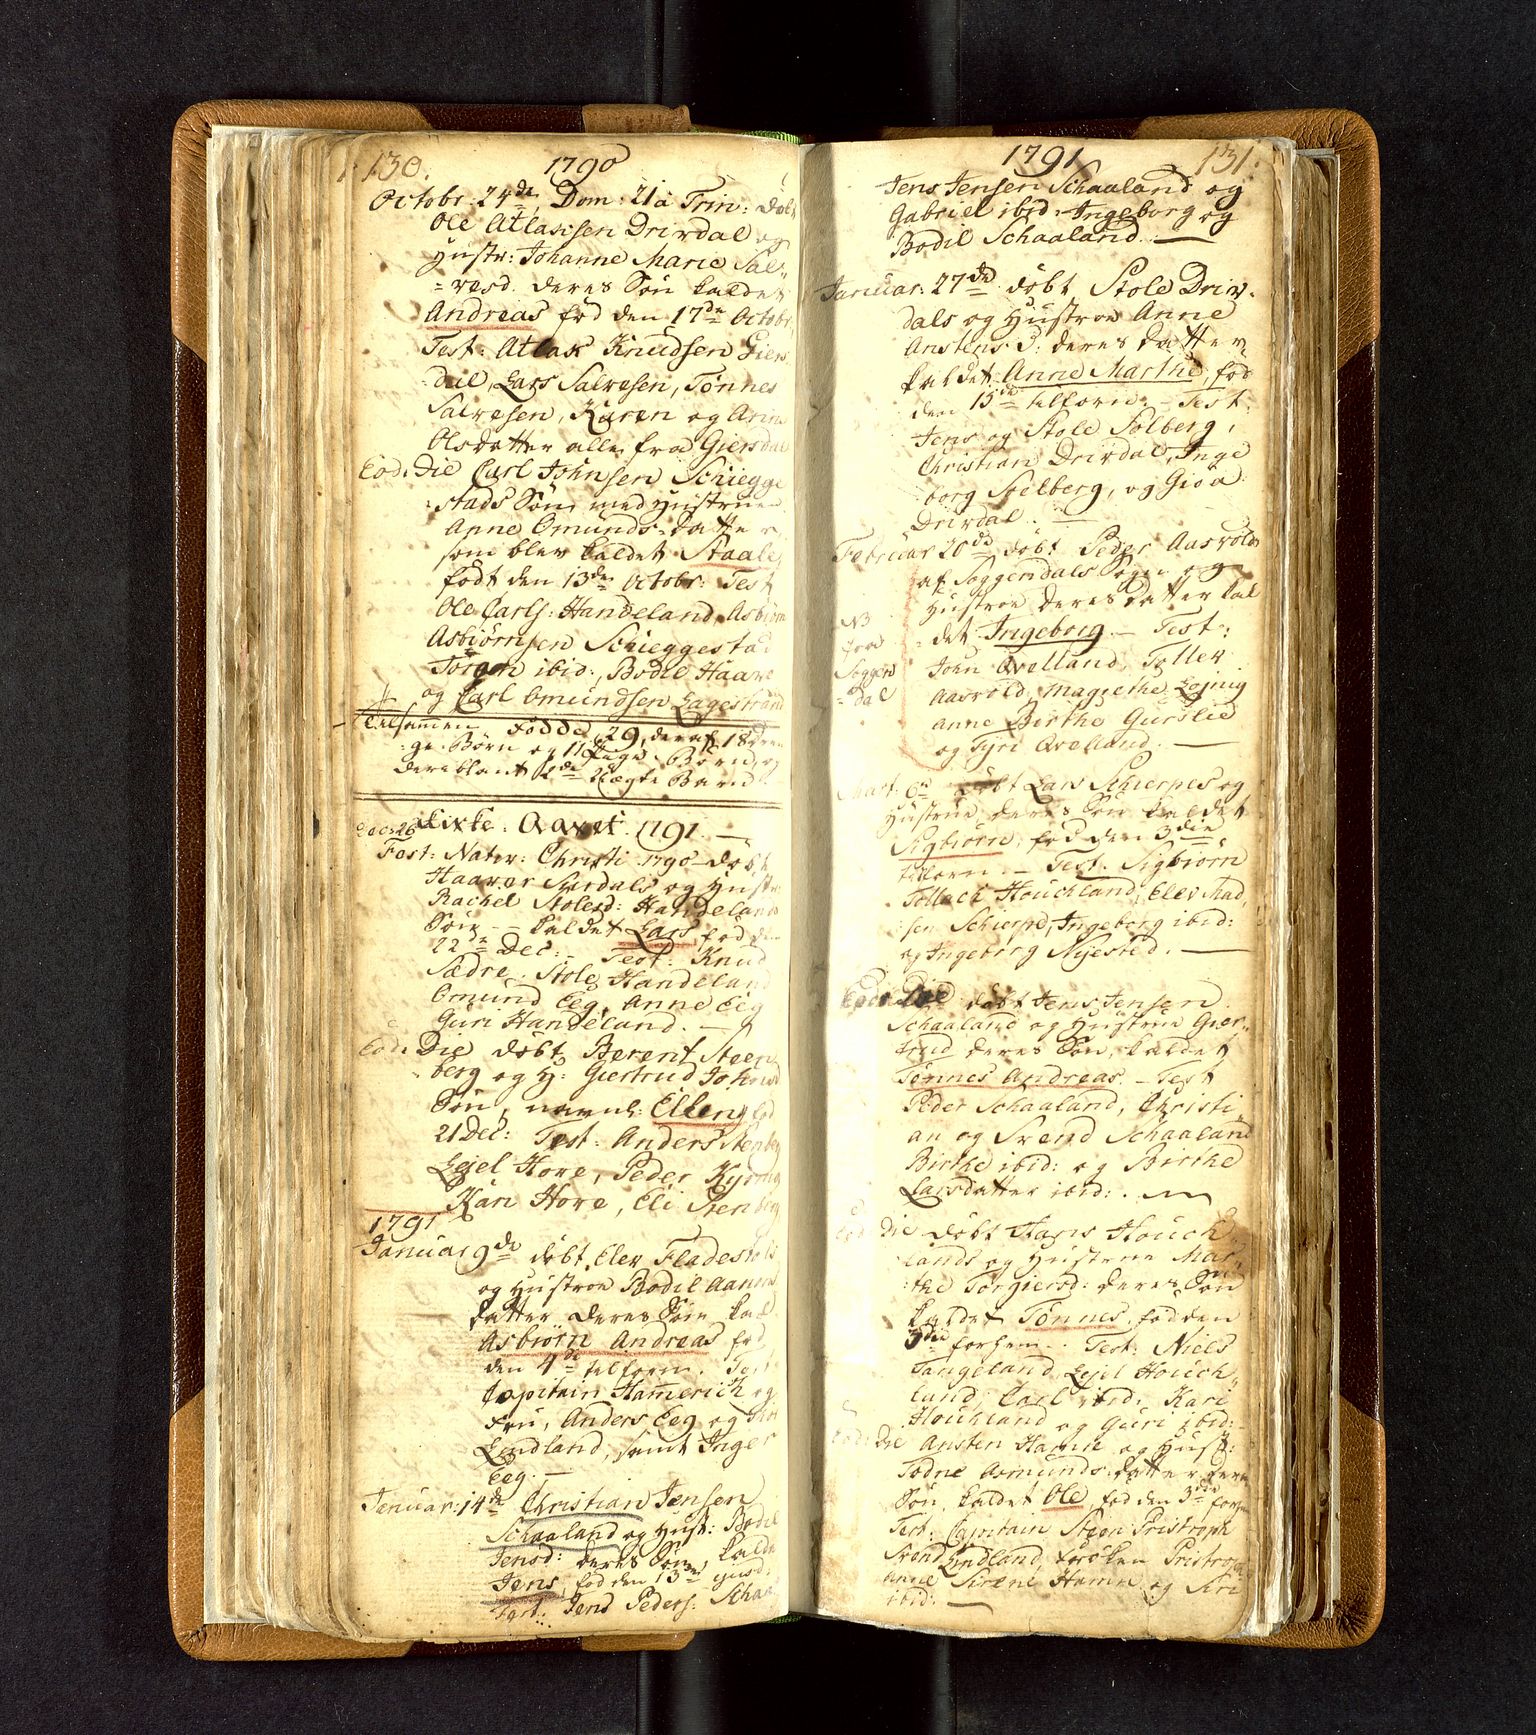 130.
1790
Octobr: 24de, Dom: 21 à Trin: døbt
Ole Atlaksen Drivdal og
Hustr: Johanne Marie Sal-
=vesd. deres Søn kaldet
Andreas fød den 17de Octobr.
Test: Atlak Knudsen Giers
=dal, Lars Salvesen, Tønnes
Salvesen, Karen og
Olsdatter alle fra Giersdal
Eod: Die Carl Johnsen Schiegge
=stads Søn med Hustrue
Anne Omunds Datter
som blev kaldet Staale
født den 13de Octobr: Test
Ole Carls: Handeland, Asbiørn
Asbiørnsen Schieggestad
Torgen ibid:, Bodil Haave
og Carl Omundsen Lagestrand
tilsammen Fødde 29, deraf 18 Dren
=ge-Børn og 11 Pige-Børn, og
deriblant 1de Uægte Barn.
Kirke-Aaret 1791.
Dec: 26
Fest: Nativ: Christi 1790 døbt
Haaver Sirdals og Hustr:
Rachel Stolesd: Handelands
Søn kaldet Lars, fød den
22de Dec: Test: Knud
Sædre, Stole Handeland
Omund Eeg, Anne Eeg
Guri Handeland.
Eod: Die døbt Berent Steen
berg og H: Giertrud Johnsd
Søn, navnl: Ellen, fød
21 Dec: Test: Anders Stenberg
Lejel Hove, Peder
Kari Hove, Eli Stenberg
1791
Januar 9de døbt Elev Fladestøls
og Hustroe Bodil Aanens
datter deres Søn kal
Asbiørn Andreas fød
den 4de tilforn. Test
Capitain Hammerich og
Frue, Anders Eeg og
Lindland, samt Inger
Eeg.
Januar: 14de Christian Jensen
Schaaland og Hust: Bodil
Jensd: deres Søn, kaldet
Jens, fød den 13de
Test: Jens Peders: Schaa
1791
131.
Jens Jensen Schaaland og
Gabriel ibid: Ingeborg og
Bodil Schaaland.
Januar: 27de døbt Stole Driv-
dals og Hustroe Anne
Anstens D: deres Datter
kaldet Anne Marthe, fød
den 15de tilforn. Test.
Jens og Stole Solberg,
Christian Drivdal, Inge
borg Solberg, og Gioa
Drivdal.
Februar 20de døbt Peder Aasvolds
af Soggendals Sogn og
Hustroe deres Datter kal
NB
fra
Soggen
=dal
=det Ingeborg. Test:
John Qvelland, Toller
Aasvold, Magrethe
Anne Birthe Gursled
og Tyri Qvelland.
Mart: 6te døbt Lars Schierpes og
Hustrue deres Søn kaldet
Sigbiørn, fød den 3die
tilforn. Test: Sigbiørn
Tollach Houchland, Elev Mad,
sen Schierpe, Ingeborg ibid:
og Ingeborg Nyested.
Eod: Die døbt Jens Jensen
Schaaland og Hustrue Gier-
trud deres Søn, kaldet
Tønnes Andreas. Test
Peder Schaaland, Christi
an og Svend Schaaland
Birthe ibid: og Birthe
Larsdatter ibid:.
Eod: Die døbt Hans Houch
lands og Hustrue Mar,
the Torgiersd: deres Søn
kaldet Tønnes, fød den
3die forhen. Test: Niels
Tangeland, Lejel Houch,
land, Carl ibid, Kari
Houchland og Guri ibid:
Eod: Die Ansten Hamre og Hust:
Todne Asmunds Datter deres
Søn, kaldet Ole, fød den 3die
Test: Capitain Steen Pristroph
Svend Lindland, Frøken Pristroph
Anne Sirene Hamre og Siri
ibid: